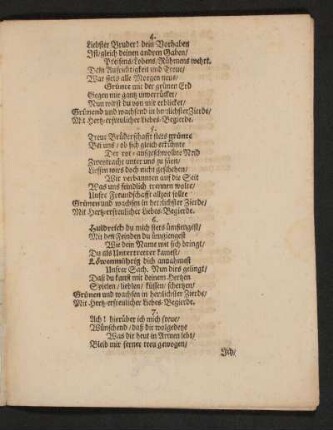 4.
Liebster Bruder! dein Vorhaben
Ist/ gleich deinen andern Gaben/
Preisens/ Lobens/ Rühmens wehrt.
Dein Aufrichtigkeit und Treue/
War stets alle Morgen neue/
Grünte mit der grünen Erd
Gegen mir gantz unverrücket/
Nun wirst du von mir erblicket/
Grünend und wachsend in herrlichster Zierde/
Mit Hertz-erfreulicher Liebes-Begierde.
5.
Treue Brüderschafft stets grünte
Bei uns/ ob sich gleich erkühnte
Der rot-aufgeschwollne Neid
Zwietracht unter uns zu säen/
Liessen wirs doch nicht geschehen/
Wir verbannten auf die Seit
Was uns feindlich trennen wolte/
Unsre Freundschafft allzeit solte
Grünen und wachsen in herrlichster Zierde/
Mit Hertz-erfreulicher Liebes-Begierde.
6.
Huldreich du mich stets ümfiengest/
Mit den Feinden du ümgiengest
Wie dein Name mit sich bringt/
Du als Untertretter kamest/
Löwenmühtig dich annahmest
Unsrer Sach. Nun dirs gelingt/
Daß du kanst mit deinem Hertzen
Spielen/ lieblen/ küssen/ schertzen/
Grünen und wachsen in herrlichster Zierde/
Mit Hertz-erfreulicher Liebes-Begierde.
7.
Ach! hierüber ich mich freue/
Wünschend/ daß dir wolgedeye
Was dir heut in Armen lebt/
Bleib mir ferner treu gewogen/
Ich/